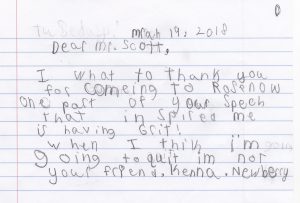 mrach 19, 2018
Dear Mr. Scott,
I what to thank you
for comeing to Rosenow
one part of your speech
that in spired me
is having Grit!
when I thik i'm
going to quit im not
your friend. Kenna. Newberry